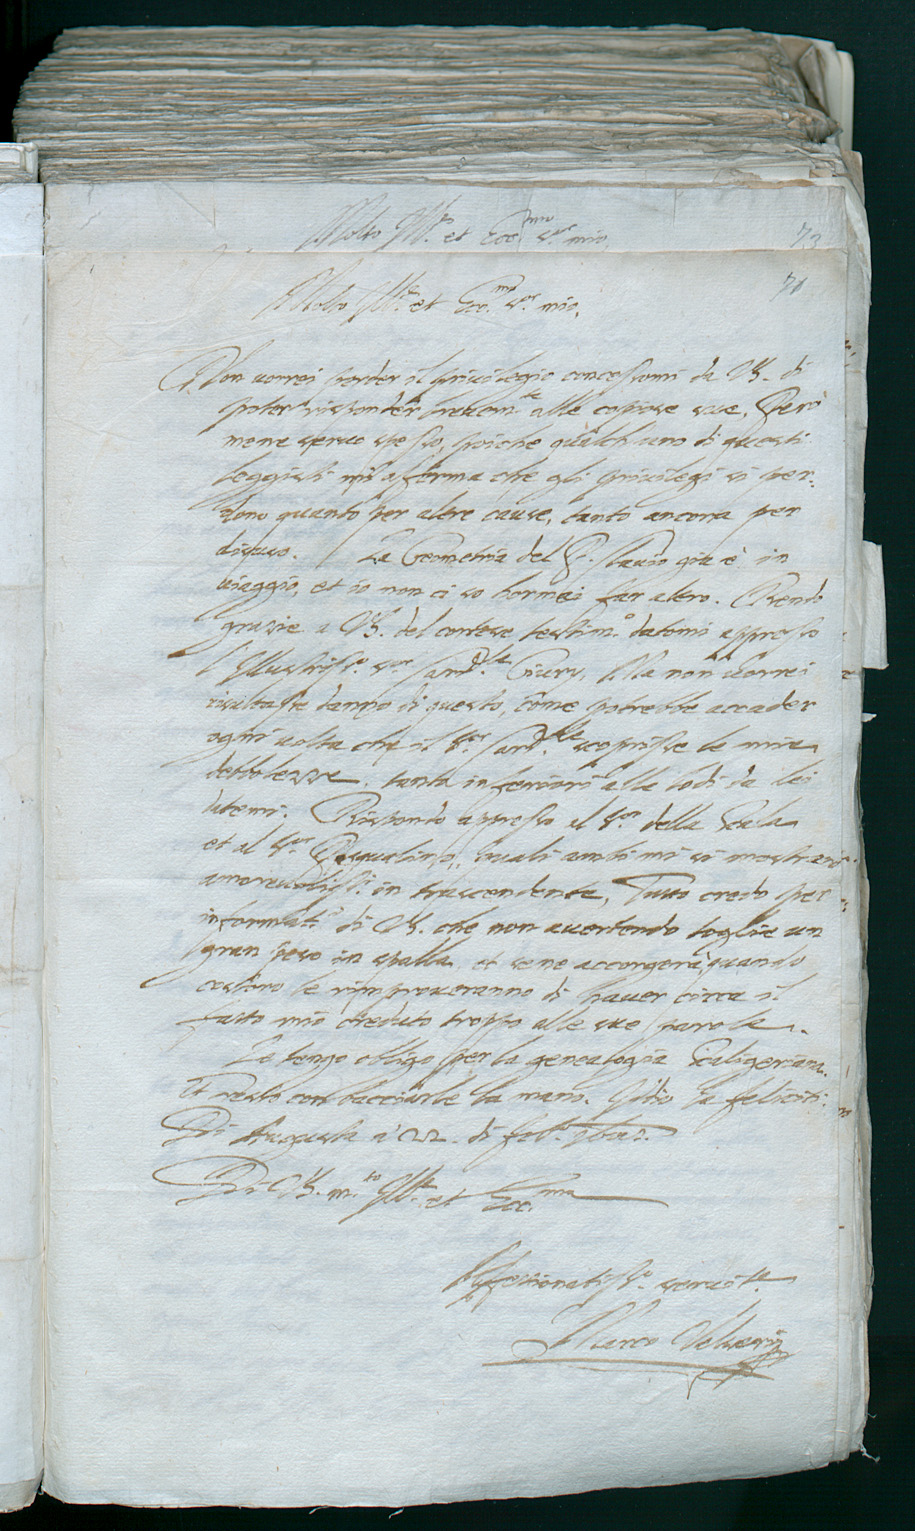 Molto Ill.re et Ecc.mo S.or mio,
73
Molto Ill.re et Ecc.mo S.or mio,
70
Non vorrei perder il privilegio concessomi da VS. di
poter risponder brevem.te alle copiose sue. Però
mene servo spesso, poiche qualch'uno di questi
leggisti mi afferma che gli privilegi si per-
dono quanto per altre cause, tanto ancora per
disuso. La Geometria del P. Clavio già è in
viaggio, et io non ci so hormai far altro. Rendo
gratie a VS. del cortese testim.o datomi appresso
l'Illustriss.o S.or Card.le Ma non vorrei
risultasse danno di questo, come potrebbe accader
ogni volta che il S.or Card.le scoprisse le mie
debbolezze tanto inferiori alle lodi da lei
datemi. Rispondo appresso al S.or della Scala
et al S.or Pasqualino, quali ambi mi si mostrano
amorevoliss.i in trascendente, Tutto credo per
informat.e di VS. che non avertendo toglie un
gran peso in spalla et se ne accorgerà, quando
costoro le rimproveranno di haver circa il
fatto mio creduto troppo alle sue parole.
Le tengo obligo per la genealogia Scaligeriana.
Et resto con bacciarle la mano. Iddio la feliciti.
Di Augusta a 22. di feb.o
Di VS. m.to Ill.re et Ecc.ma
Affectionatiss.o servit.e
Marco Velseri